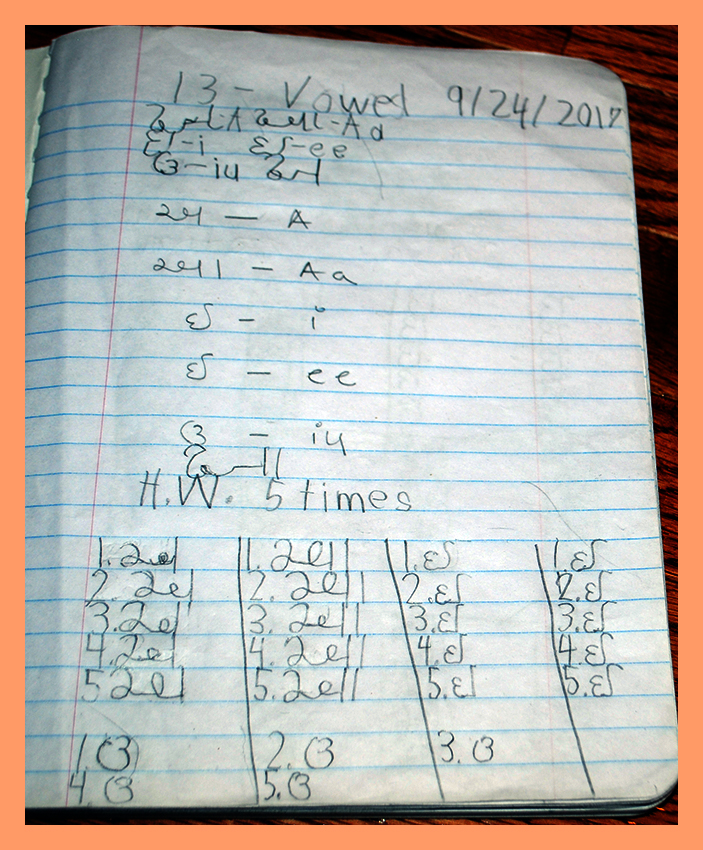 13 - Vowel 9/24/2017
અ-A આ-Aa
ઇ-i ઈ-ee
ઉ-iu અ
અ — A
આ — Aa
ઇ — i
ઈ — ee
ઉ — iu
આ
H.W. 5 times
1. અ 1. આ 1. ઇ 1. ઈ
2. અ 2. આ 2. ઇ 2. ઈ
3. અ 3. આ 3. ઇ 3. ઈ
4. અ 4. આ 4. ઇ 4. ઈ
5. અ 5. આ 5. ઇ 5. ઈ
1 ઉ 2. ઉ 3. ઉ
4. ઉ 5. ઉ